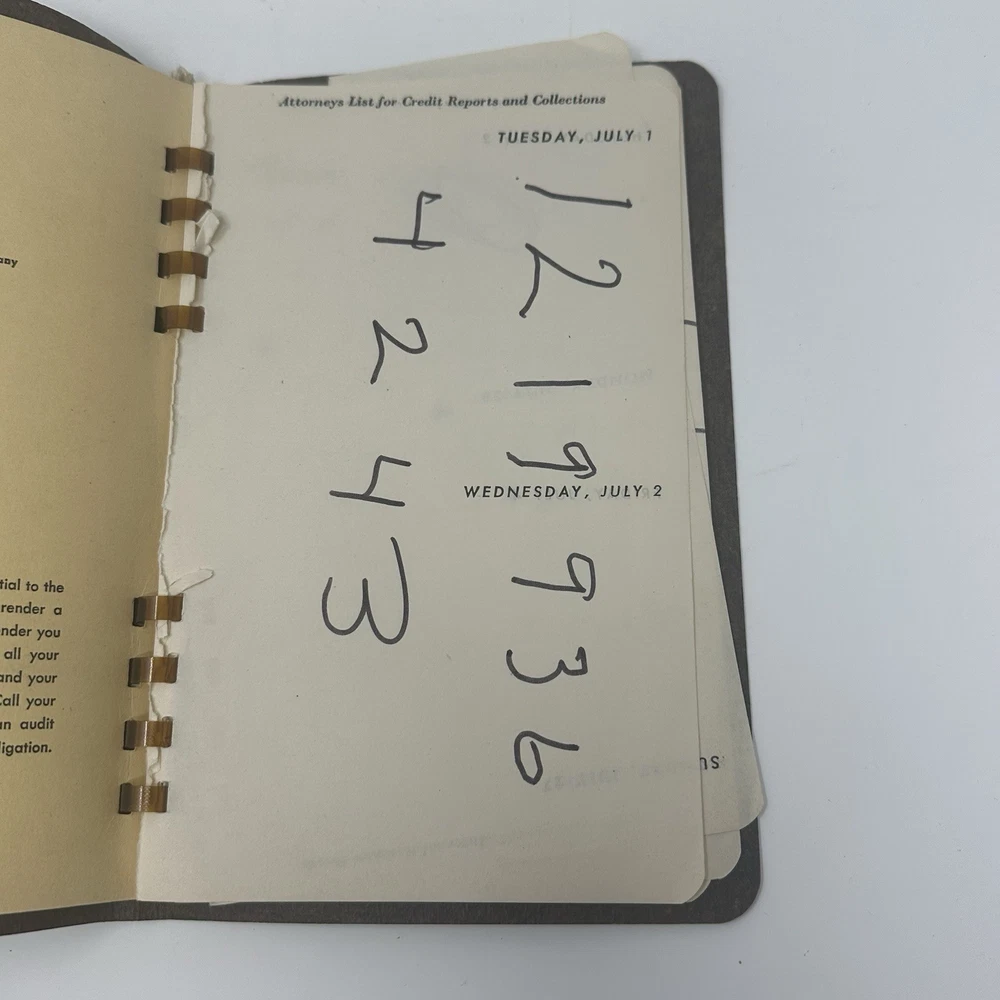 any
tial to the
render a
nder you
all your
and your
Call your
an audit
igation.
Attorneys List for Credit Reports and Collections
TUESDAY, JULY 1
1 2 1 9 9 3 6
4 2 4 3
WEDNESDAY, JULY 2
ns